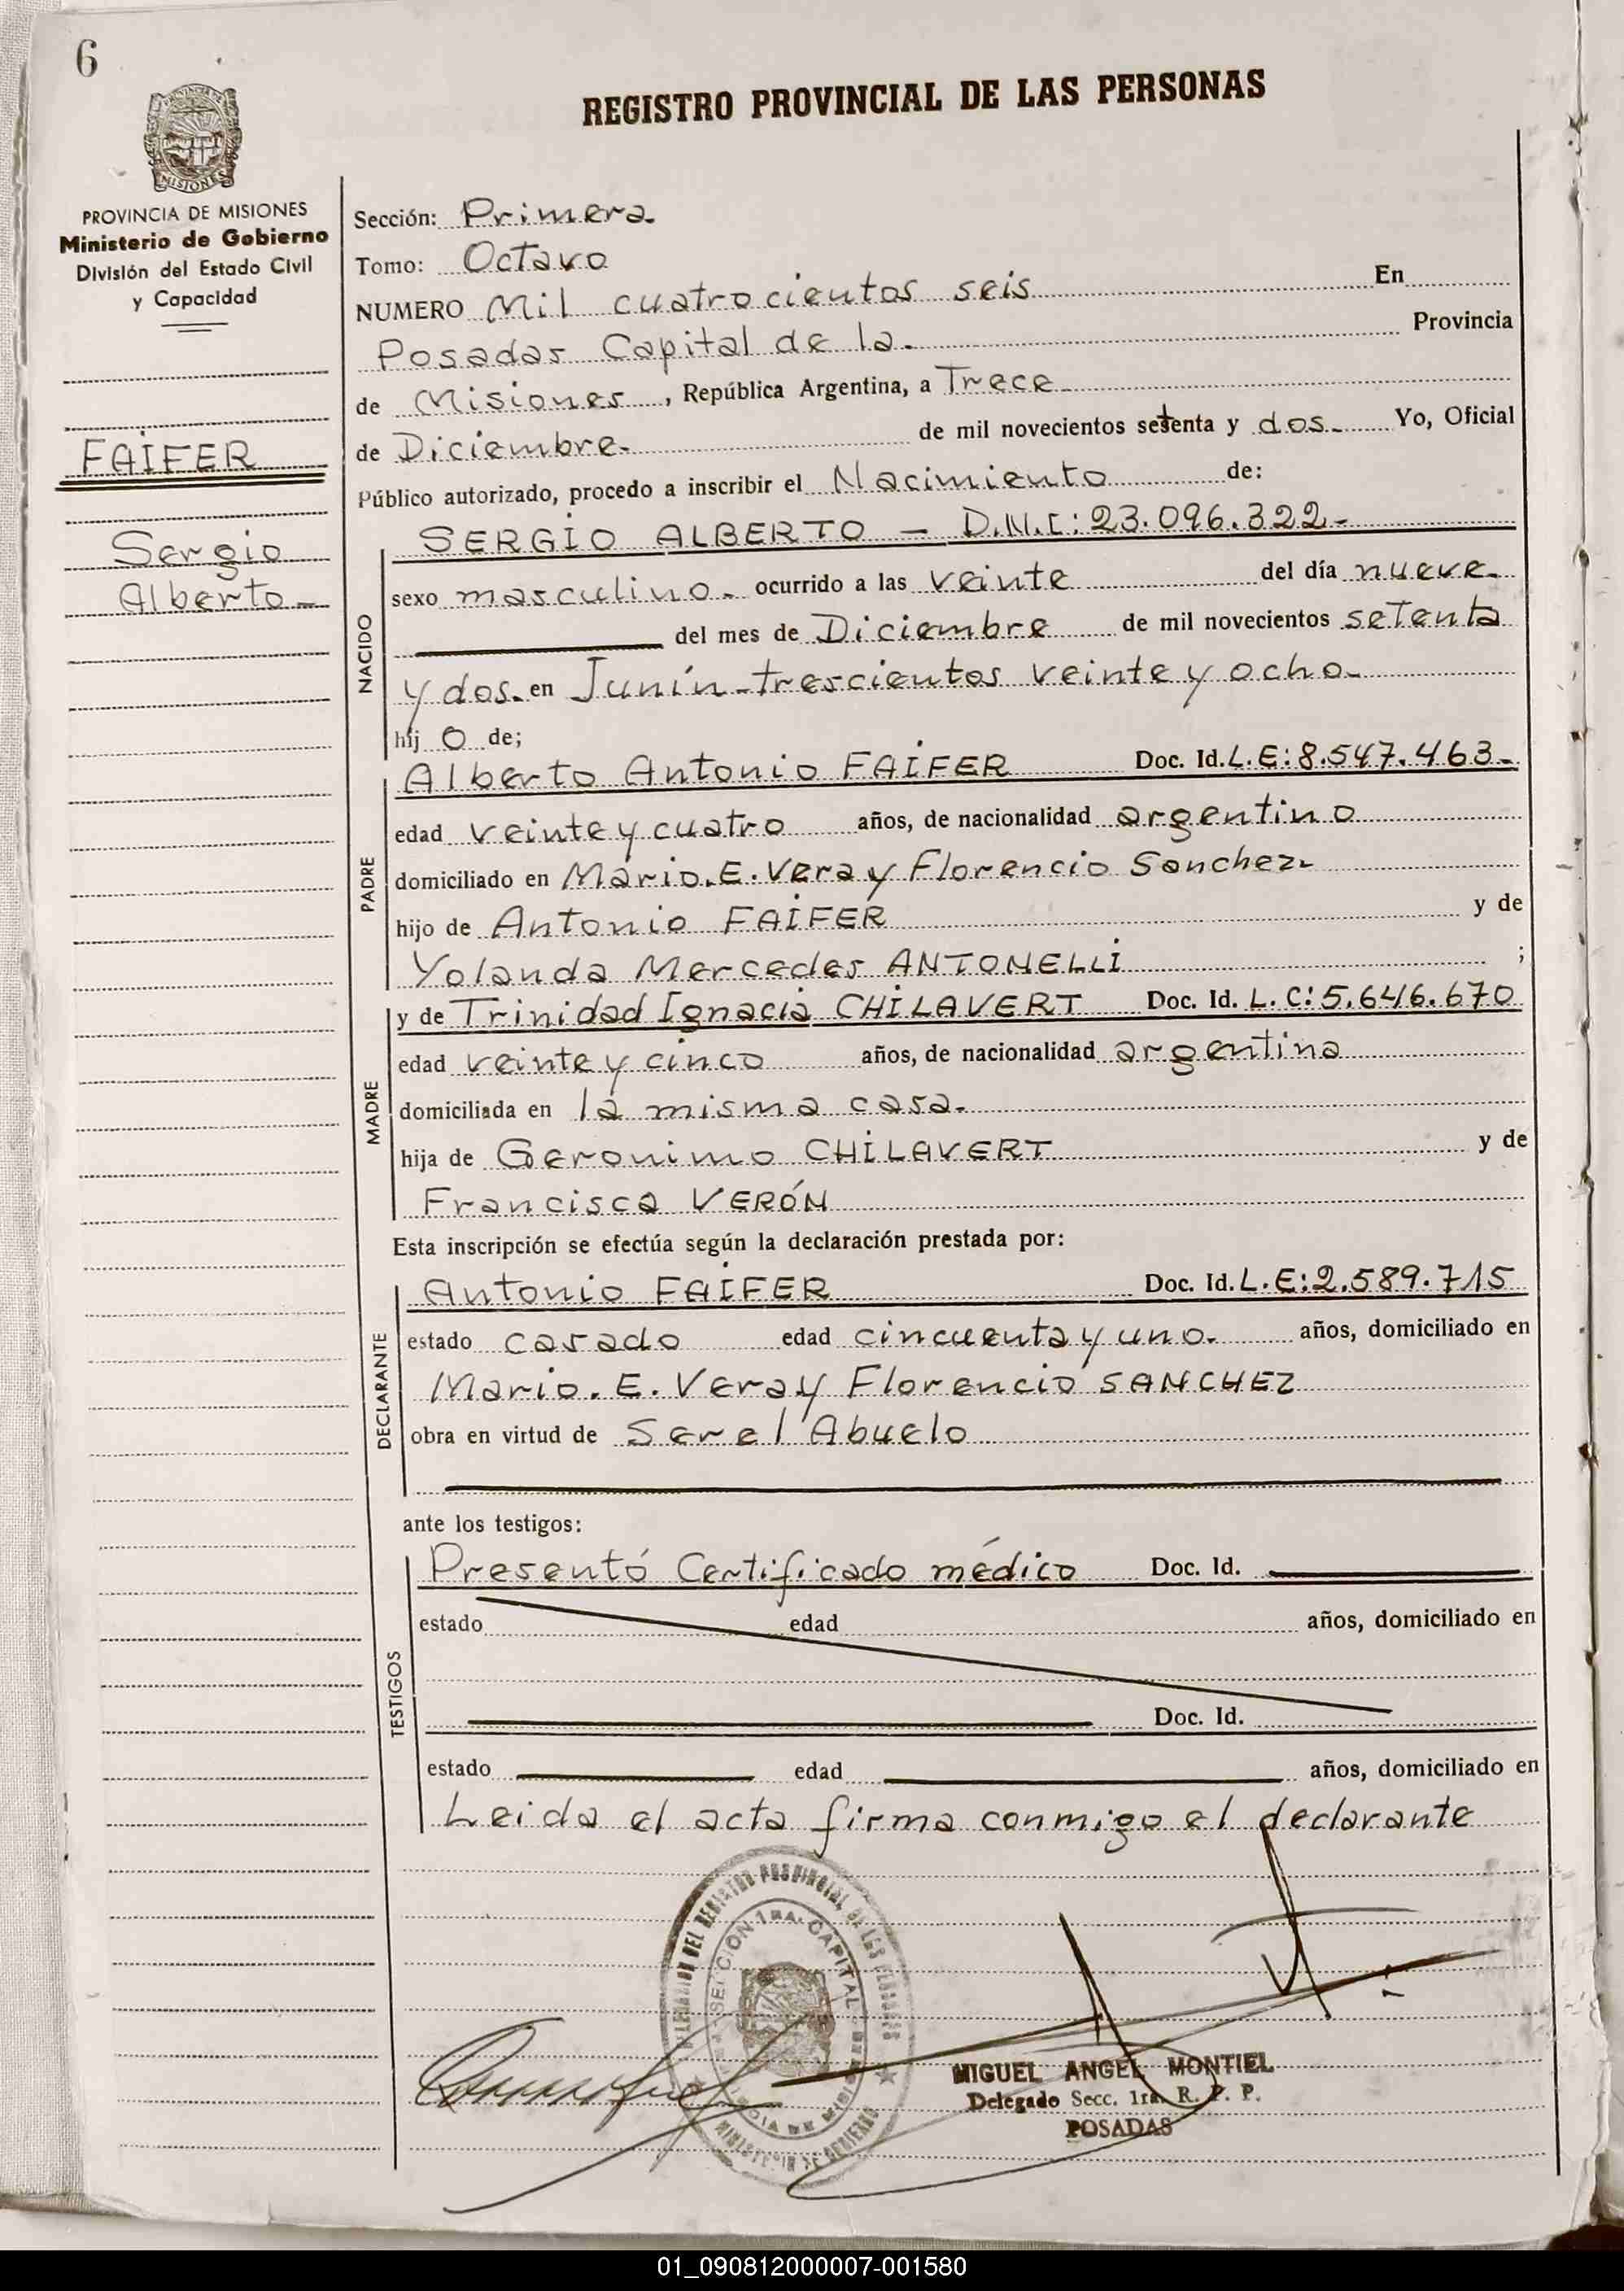 6
REGISTRO PROVINCIAL DE LAS PERSONAS
MISIONES
PROVINCIA DE MISIONES
Ministerio de Gobierno
División del Estado Civil
y Capacidad
FAIFER
Sergio
Alberto-
Sección: Primera.
Tomo: Octavo
NUMERO Mil cuatrocientos seis En
Posadas Capital de la. Provincia
de Misiones, República Argentina, a Trece
de Diciembre. de mil novecientos setenta y dos. Yo, Oficial
Público autorizado, procedo a inscribir el Nacimiento de:
SERGIO ALBERTO - D.N.I: 23.096.322-
NACIDO
sexo masculino. ocurrido a las veinte del día nueve
del mes de Diciembre de mil novecientos setenta
y dos. en Junín-trescientos veinte y ocho.
hij o de;
PADRE
Alberto Antonio FAIFER Doc. Id. L.E: 8.547.463-
edad veinte y cuatro años, de nacionalidad argentino
domiciliado en Mario.E.Vera y Florencio Sanchez
hijo de Antonio FAIFER y de
Yolanda Mercedes ANTONELLI ;
MADRE
y de Trinidad Ignacia CHILAVERT Doc. Id. L.C: 5.646.670
edad veinte y cinco años, de nacionalidad argentina
domiciliada en la misma casa.
hija de Geronimo CHILAVERT y de
Francisca VERÓN
Esta inscripción se efectúa según la declaración prestada por:
DECLARANTE
Antonio FAIFER Doc. Id. L.E: 2.589.715
estado casado edad cincuenta y uno. años, domiciliado en
Mario.E.Vera y Florencio SANCHEZ
obra en virtud de Ser el Abuelo
ante los testigos:
TESTIGOS
Presentó Certificado médico Doc. Id.
estado edad años, domiciliado en
Doc. Id.
estado edad años, domiciliado en
Leida el acta firma conmigo el declarante
DEL REGISTRO PROVINCIAL DE LAS PERSONAS
SECCION 1RA. CAPITAL
MINISTERIO DE GOBIERNO
MIGUEL ANGEL MONTIEL
Delegado Secc. 1ra. R. P. P.
POSADAS
01_090812000007-001580